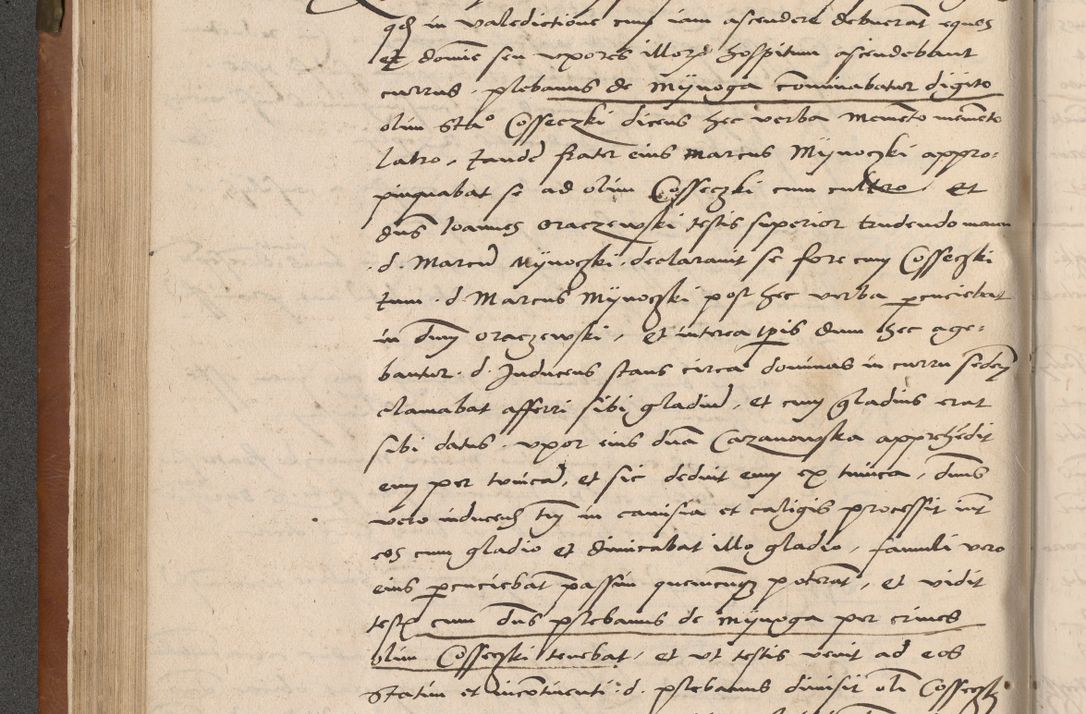 qd in valedictione cum iam ascendere debuerāt equos
et domīe seu vxores illorȝ hospitum ascendebant
currus . plebanus de Mijnoga cōminabatur digito
olim Sta° Cosseczki dicens hec verba Memēto memēto
latro , tandē frater eius Marcus Mijnoczki appro=
pinquabat se ad olim Cosseczki cum cultro , et
dn̄s Ioannes Oraczewski testis superior trudendo manu
. d . Marcū Mijnoczki . declarauit se fore cum Cosseczki
tum . d . Marcus Mijnoczki post hec verba percuciebat
in dnm̄ Oraczewski , et interea tpis dum hec age=
bantur . d . Inducens stans circa dominas in curru seden̄
clamabat afferri sibi gladiū , et cum gladius erat
sibi datus . vxor eius dnā Cazanowska apprehēdit
eum per tunicā , et sic deduit eum ex tunica , dn̄s
vero inducens tm̄ in camisia et caligis processit int̄
eos cum gladio et dimicabat illo gladio , famuli vero
eius percuciebāt passim quemcunqȝ poterāt , et vidit
testis cum dn̄s plebanus de Mijnoga per crines
olim Cosseczki tenebat , et vt testis venit ad eos
Statim et incōtinenti . d . plebanus dimisit oli Cosseczki